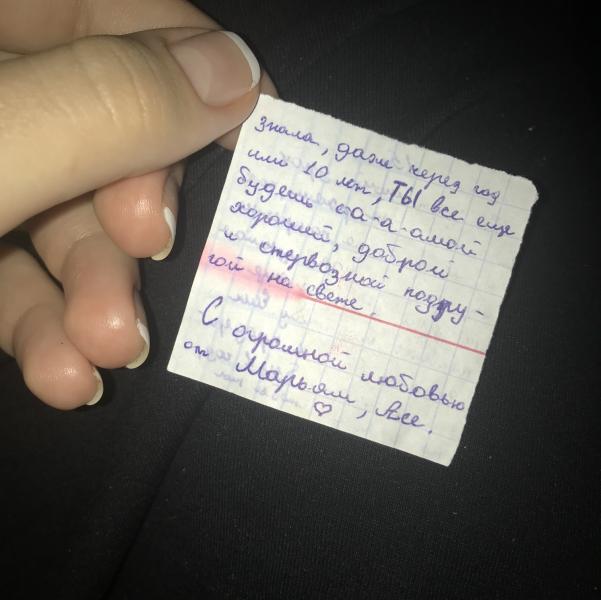 знала, даже через год
или 10 лет, ТЫ все еще
будешь са-а-амой
хорошей, доброй
и стервозной подру-
гой на свете.
С огромной любовью
от Марьям, Все.